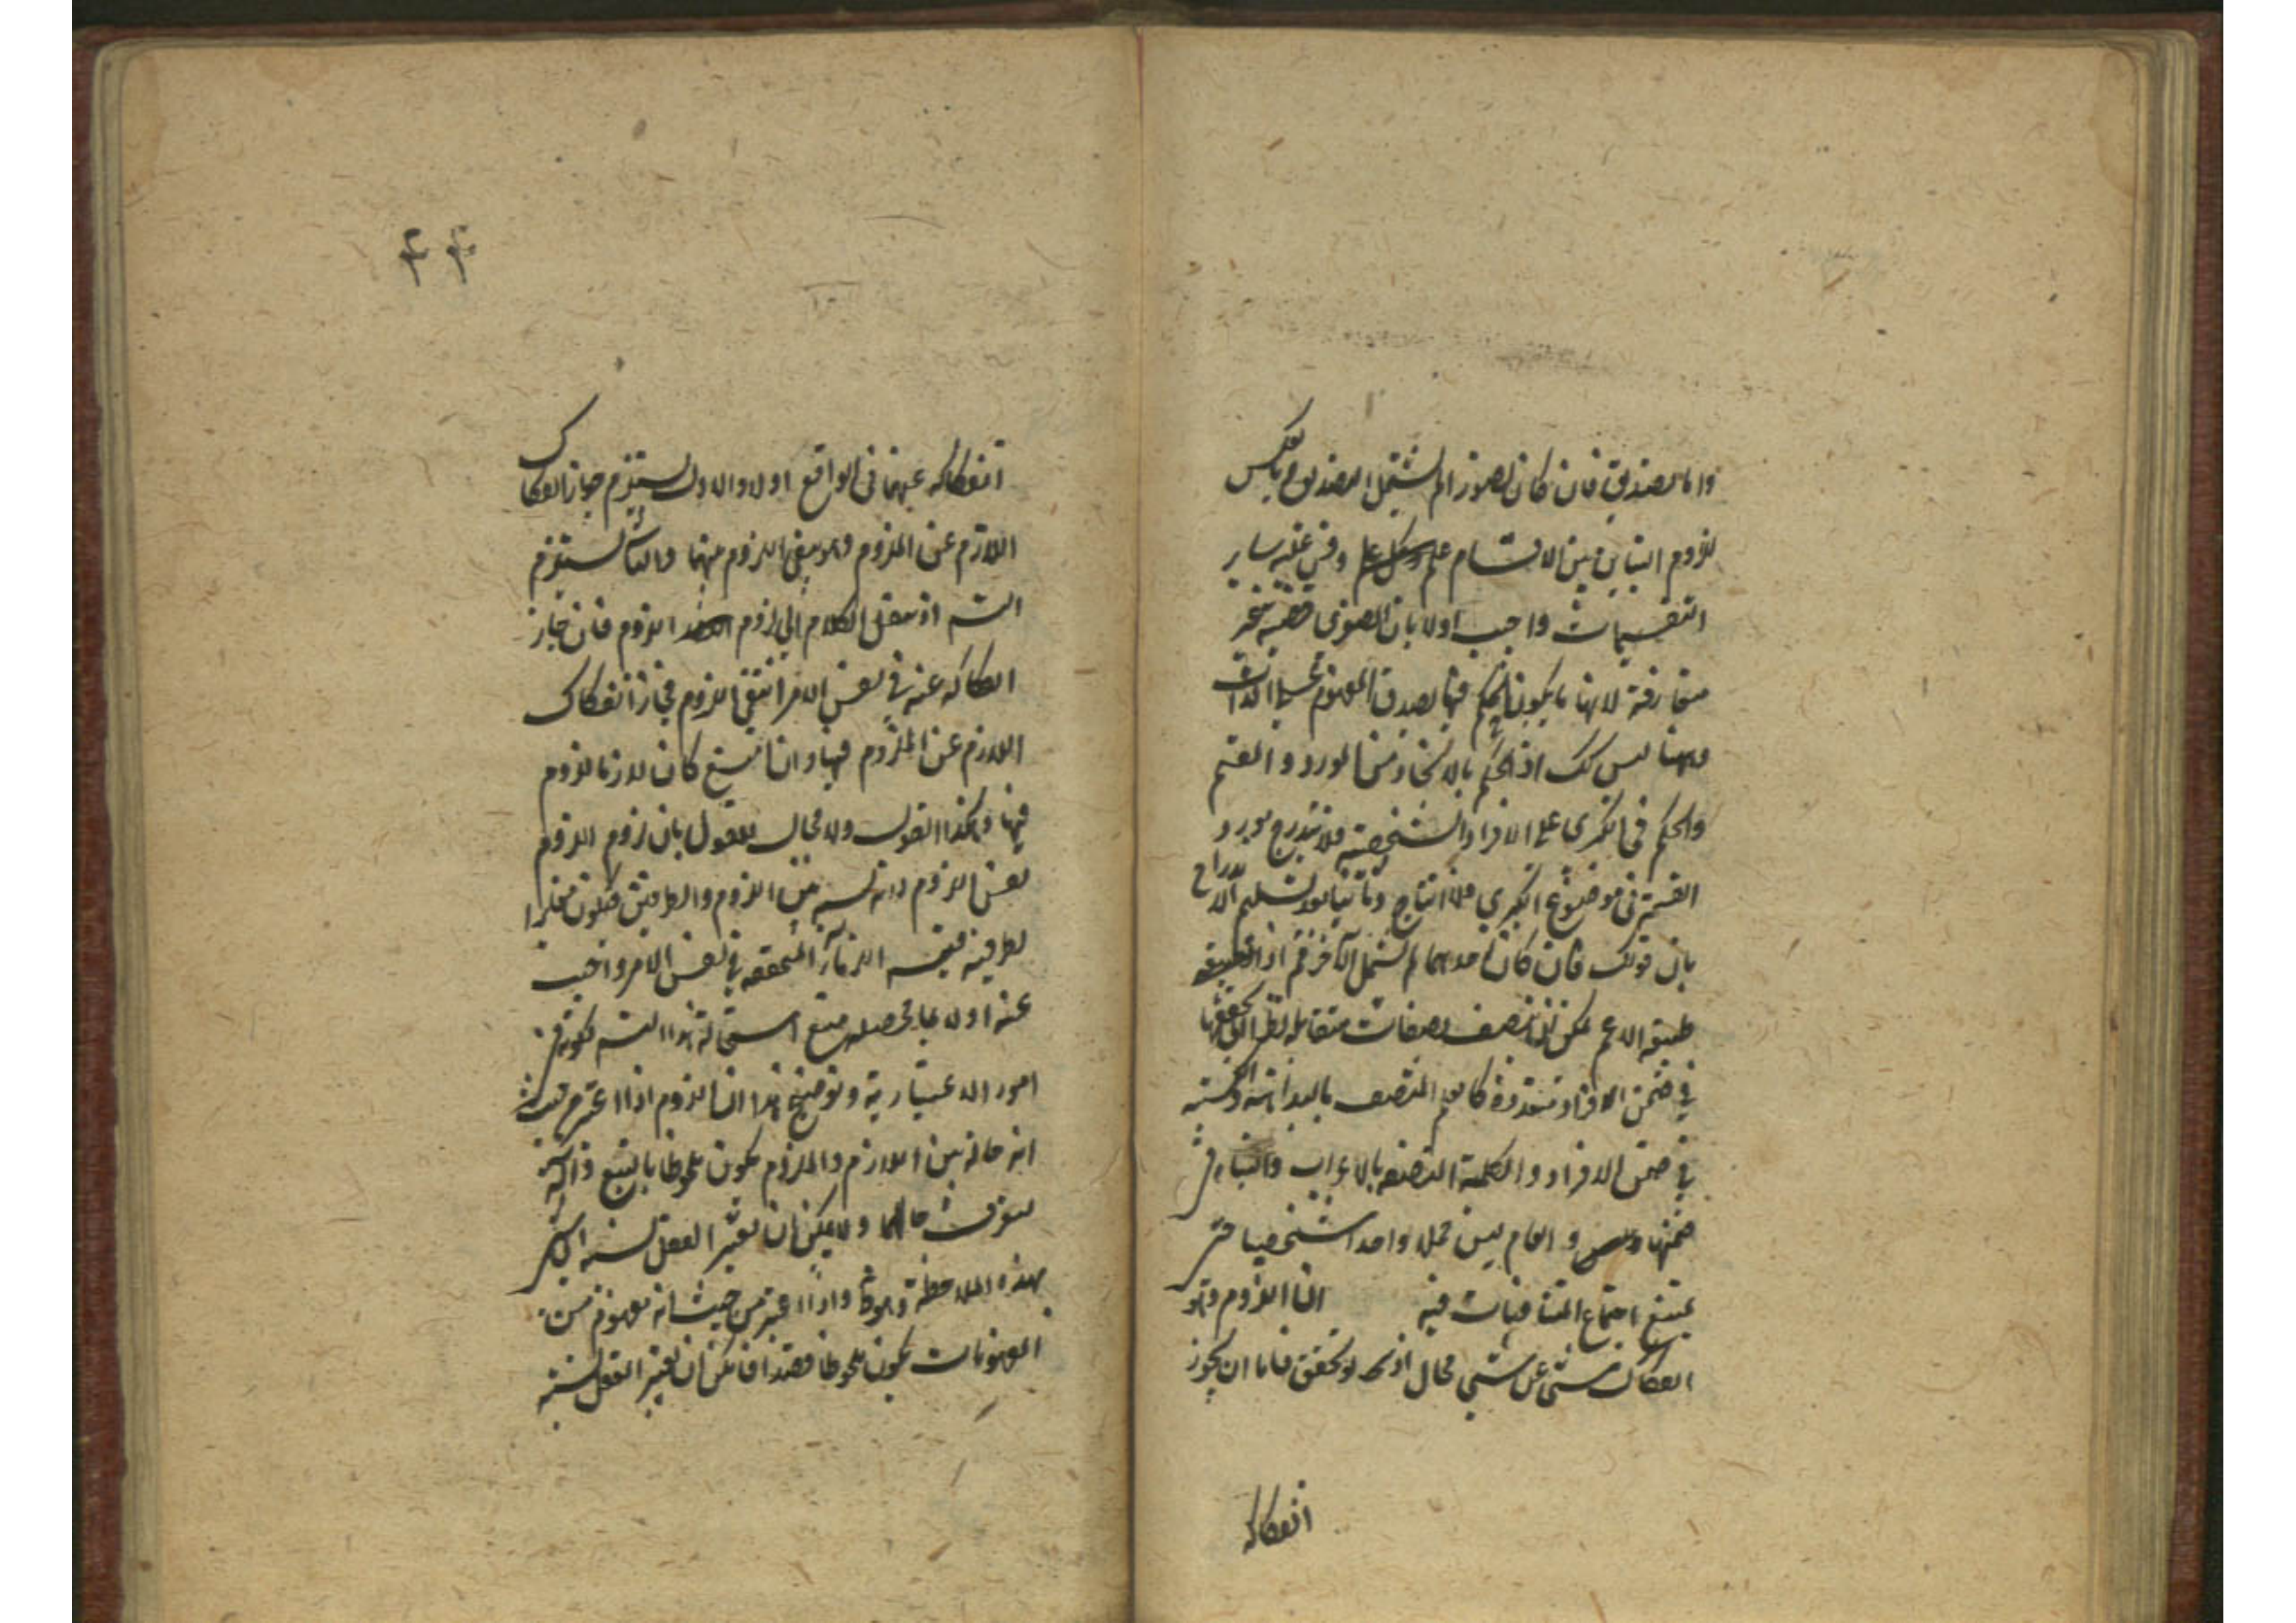 واما تصديق فان كان تصور الم يشتمل التصديق وبالعكس
لزوم التباين بين الاقسام علم وفي غيره ساير
التقسيمات واجيب اولا بان الصغرى قضية غير
متعارفة لانها ما يكون الحكم فيها بصدق المفهوم على الذات
وههنا ليس كك اذ الحكم بالاتحاد من المورد والقسم
والحكم في الكبرى على الافراد الشخصية فلا يندرج مورد
القسمة في موضوع الكبرى فلا انتاج وثانيا بعد تسليم الاندراج
بان قولك فان كان احدهما لم يشمل الآخر مم اذ
طبيعة الاعم يمكن ان تتصف بصفات متقابلة نظرا الى تحققها
في ضمن الافراد متعددة كالعلم المتصف بالبداهة والكسبية
في ضمن الافراد والكلمة المتصفة بالاعراب والبناء في
ضمنها و العام ليس محلا واحدا شخصيا حتى
يمتنع اجتماع المتنافيات فيه ان اللزوم وهو
انفكاك شئ عن شئ محال اذ لو تحقق فاما ان يجوز
انفكاكه
۴۴
انفكاكه عنهما في الواقع اولا والاول يستلزم جواز انفكاك
اللازم عن الملزوم والا يبقى اللزوم بينهما والثانى يستلزم
التسه اذ ننقل الكلام الى لزوم اللزوم فان جاز
انفكاكه عنه في نفس الامر انتفى اللزوم فجاز انفكاك
اللازم عن الملزوم فيها وان امتنع كان لازما للزوم
فيها وهكذا القول ولا مجال للقول بان لزوم اللزوم
نفس اللزوم لانه نسبة بين اللزوم والطرفين فيكون مغايرا
لطرفيه فيتجه المتحققة في نفس الامر واجيب
عنه اولا بما محصله منع استحالة هذا التسه لكونه في
امور الاعتبارية وتوضيح هذا ان اللزوم اذا اعتبر من حيث
انه حالة بين اللازم والملزوم يكون ملحوظا بالتبع وآلة
لتعرف حالهما ولا يمكن ان يعتبر العقل نسبة الى آخر
بهذه الملاحظة واذا اعتبر من حيث انه مفهوم من
المفهومات يكون ملحوظا قصدا فامكن ان يعتبر العقل نسبة